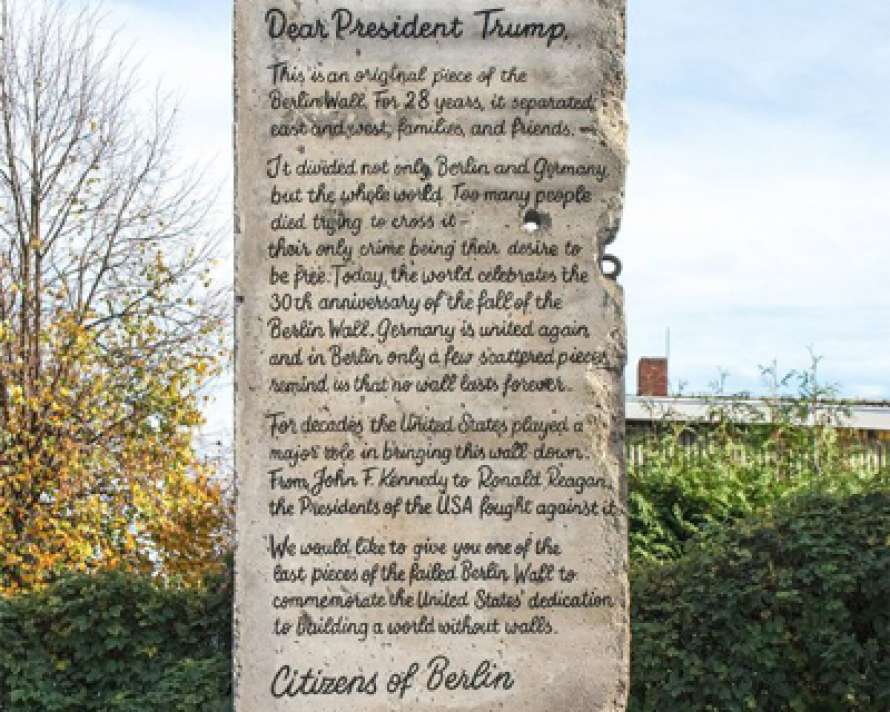 Dear President Trump,
This is an original piece of the
Berlin Wall. For 28 years, it separated
east and west, families, and friends.
It divided not only Berlin and Germany,
but the whole world. Too many people
died trying to cross it –
their only crime being their desire to
be free. Today, the world celebrates the
30th anniversary of the fall of the
Berlin Wall. Germany is united again
and in Berlin only a few scattered pieces
remind us that no wall lasts forever.
For decades the United States played a
major role in bringing this wall down.
From John F. Kennedy to Ronald Reagan,
the Presidents of the USA fought against it.
We would like to give you one of the
last pieces of the failed Berlin Wall to
commemorate the United States' dedication
to building a world without walls.
Citizens of Berlin